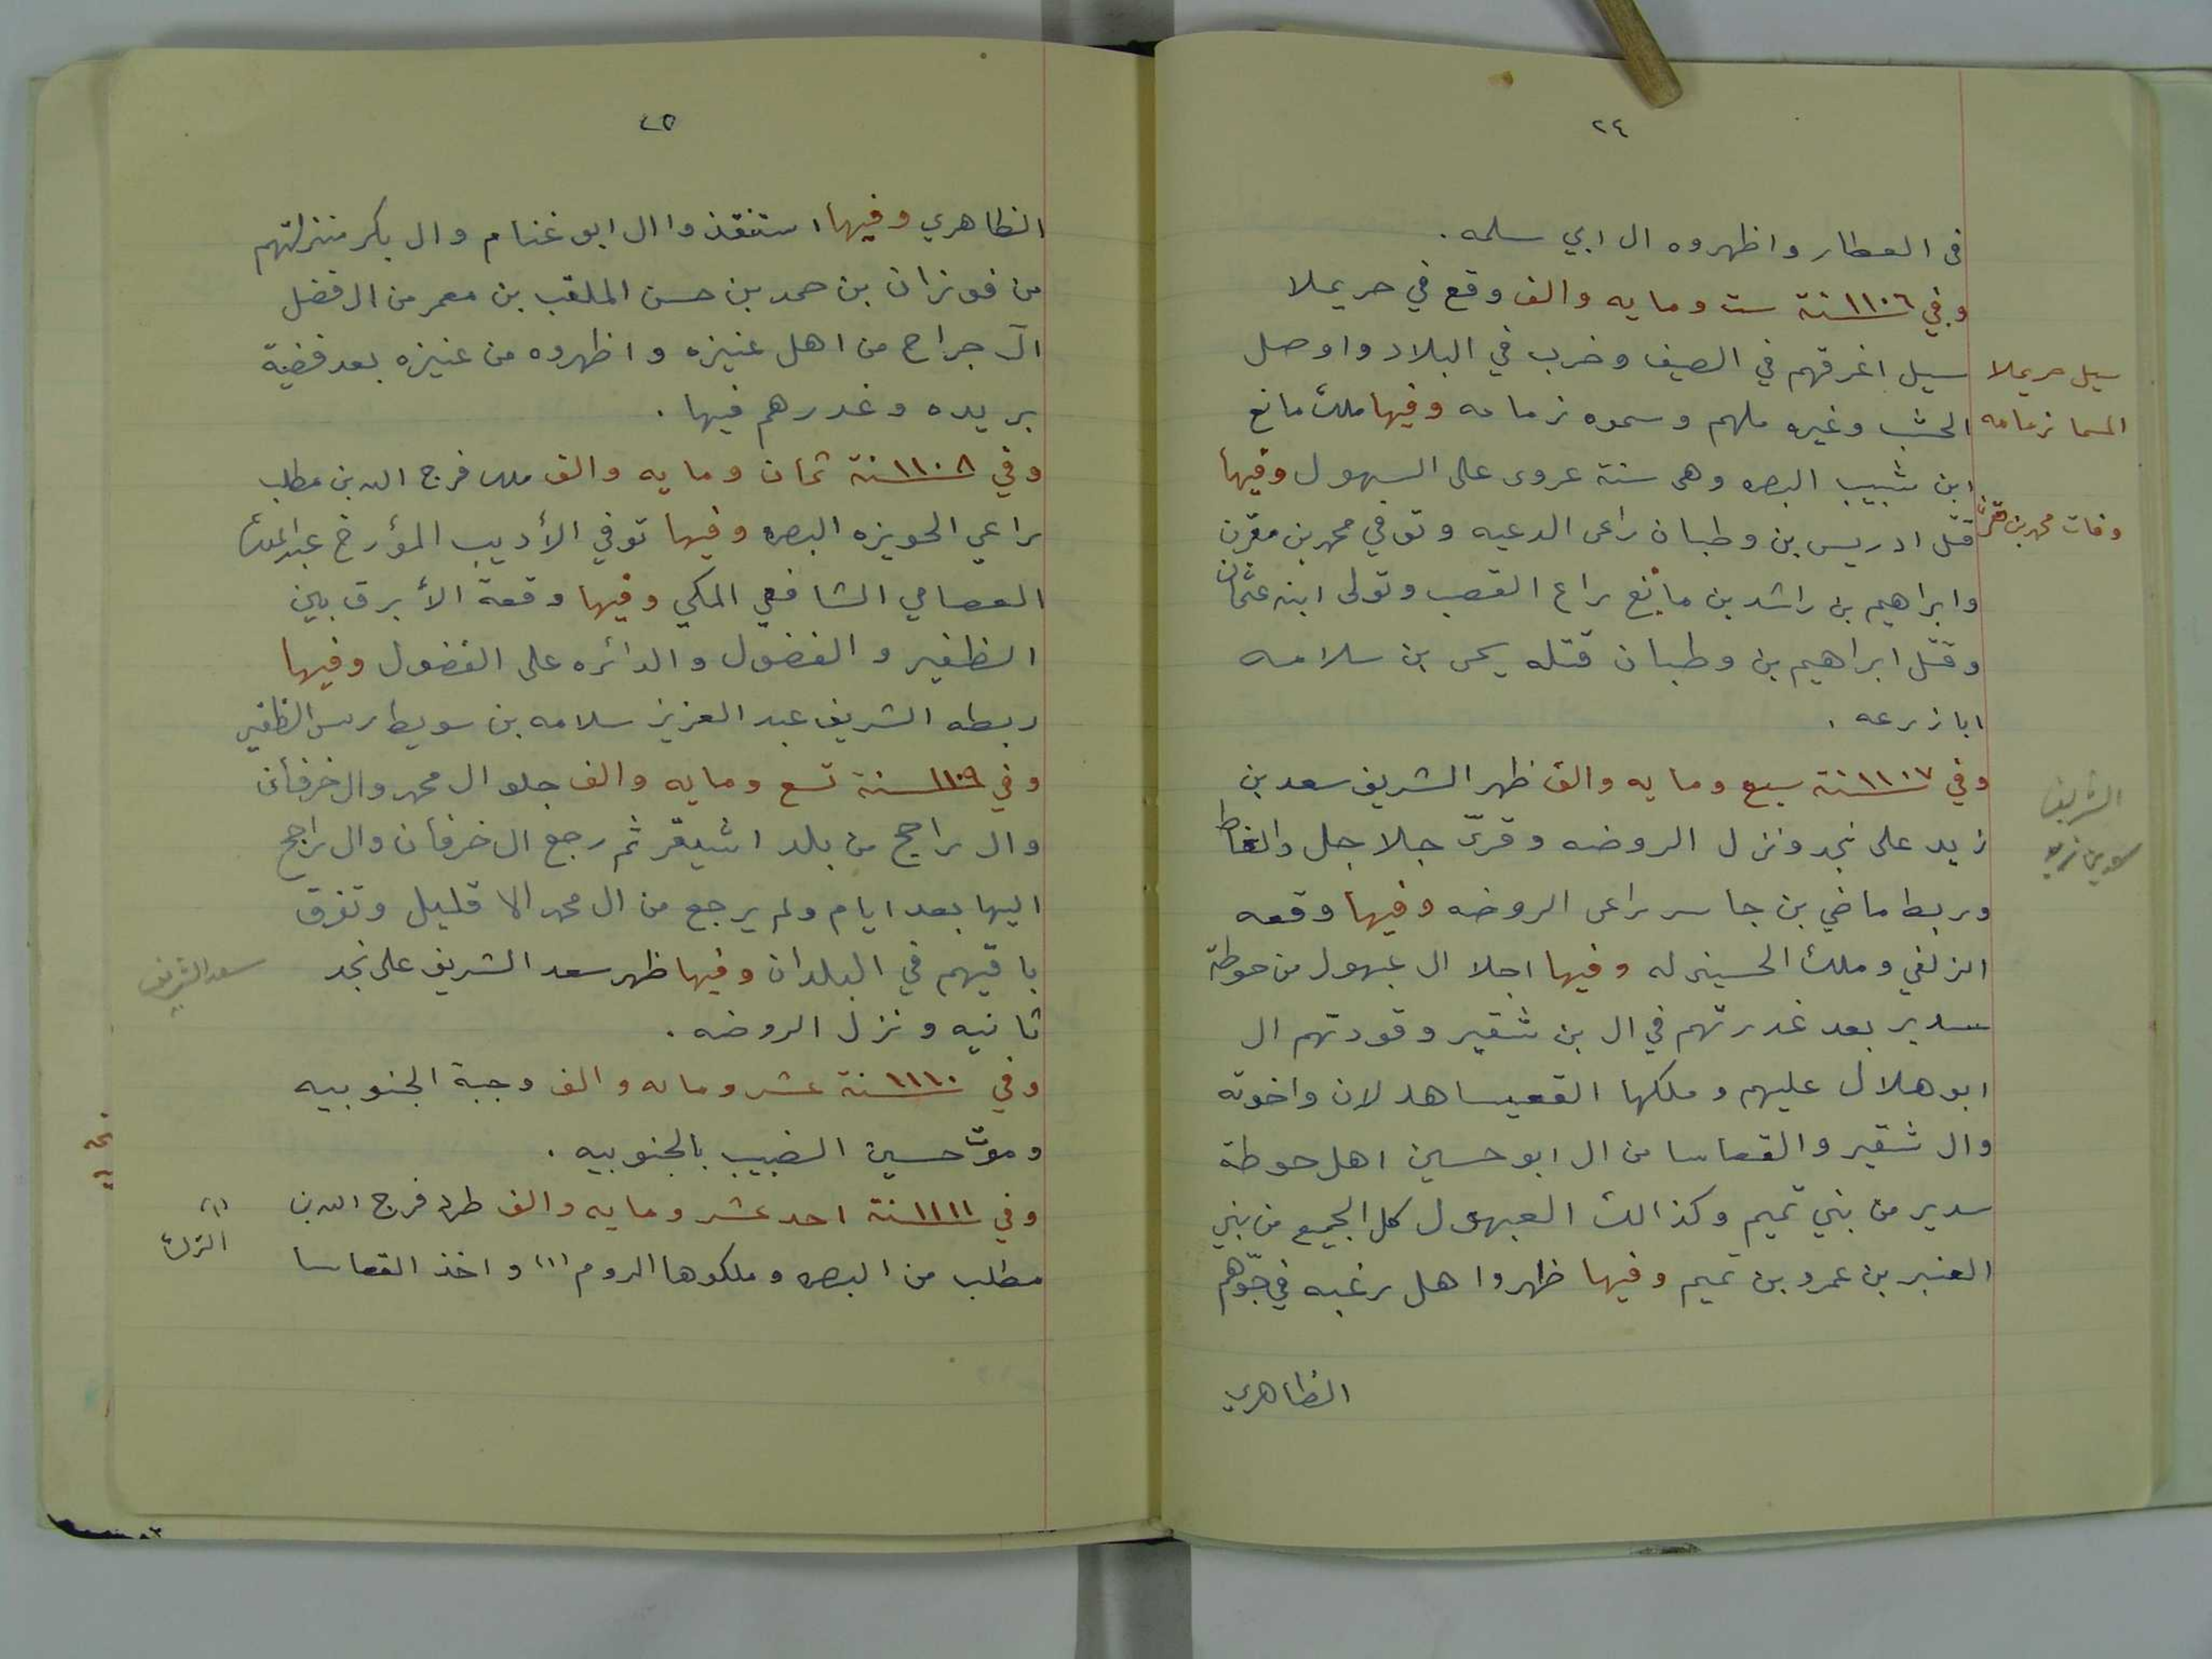 ٢٤
في العطار واظهروه ال ابي سلمه .
وفي ١١٠٦ سنة ست ومايه والف وقع في حريملا
سيل اغرقهم في الصيف وخرب في البلاد واوصل
الحشب وغيره ملهم وسموه زمامه وفيها ملك مانع
ابن شبيب البصره وهي سنة عروى على السهول وفيها
قتل ادريس بن وطبان راعي الدعيه وتوفي محمد بن مقرن
وابراهيم بن راشد بن مانع راع القصب وتولى ابنه عثمان
وقتل ابراهيم بن وطبان قتله يحي بن سلامه
ابا زرعه .
وفي ١١٠٧ سنة سبع ومايه والف ظهر الشريف سعد بن
زيد على نجد ونزل الروضه وقرّ جلاجل والغاط
وربط ماضي بن جاسر راعي الروضه وفيها وقعه
الزلفي وملك الحسيني له وفيها اجلا ال عبهول من حوطة
سدير بعد غدرتهم في ال بن شقير وقودتهم ال
ابو هلال عليهم وملكها القعيسا هدلان واخوته
وال شقير والقعاسا من ال ابو حسين اهل حوطة
سدير من بني تميم وكذالك العبهول كل الجميع من بني
العنبر بن عمرو بن تميم وفيها ظهروا اهل رغبه في جوّهم
الظاهري
سيل حريملا
المسما زمامه
وفات محمد بن مقرن
الشريف
سعد بن زيد
٢٥
الظاهري وفيها استنقذوا ال ابو غنام وال بكر منزلتهم
من فوزان بن حمد بن حسن الملقب بن معمر من ال فضل
آل جراح من اهل عنيزه واظهروه من عنيزه بعد قضية
بريده وغدرهم فيها .
وفي ١١٠٨ سنة ثمان ومايه والف ملك فرج الله بن مطلب
راعي الحويزه البصره وفيها توفي الأديب المؤرخ عبد الملك
العصامي الشافعي المكي وفيها وقعة الأبرق بين
الظفير والفضول والدائره على الفضول وفيها
ربطه الشريف عبد العزيز سلامه بن سويط ريس الظفير
وفي ١١٠٩ سنة تسع ومايه والف جلو ال محمد وال خرفان
وال راجح من بلد اشيقر ثم رجع ال خرفان وال راجح
اليها بعد ايام ولم يرجع من ال محمد الا قليل وتفرق
باقيهم في البلدان وفيها ظهر سعد الشريف على نجد
ثانيه ونزل الروضه .
وفي ١١١٠ سنة عشر ومايه والف وجبة الجنوبيه
وموت حسين الضبيب بالجنوبيه .
وفي ١١١١ سنة احد عشر ومايه والف طرد فرج الله بن
مطلب من البصره وملكوها الروم (١) واخذ القعاسا
سعد الشريف
(١)
الترك